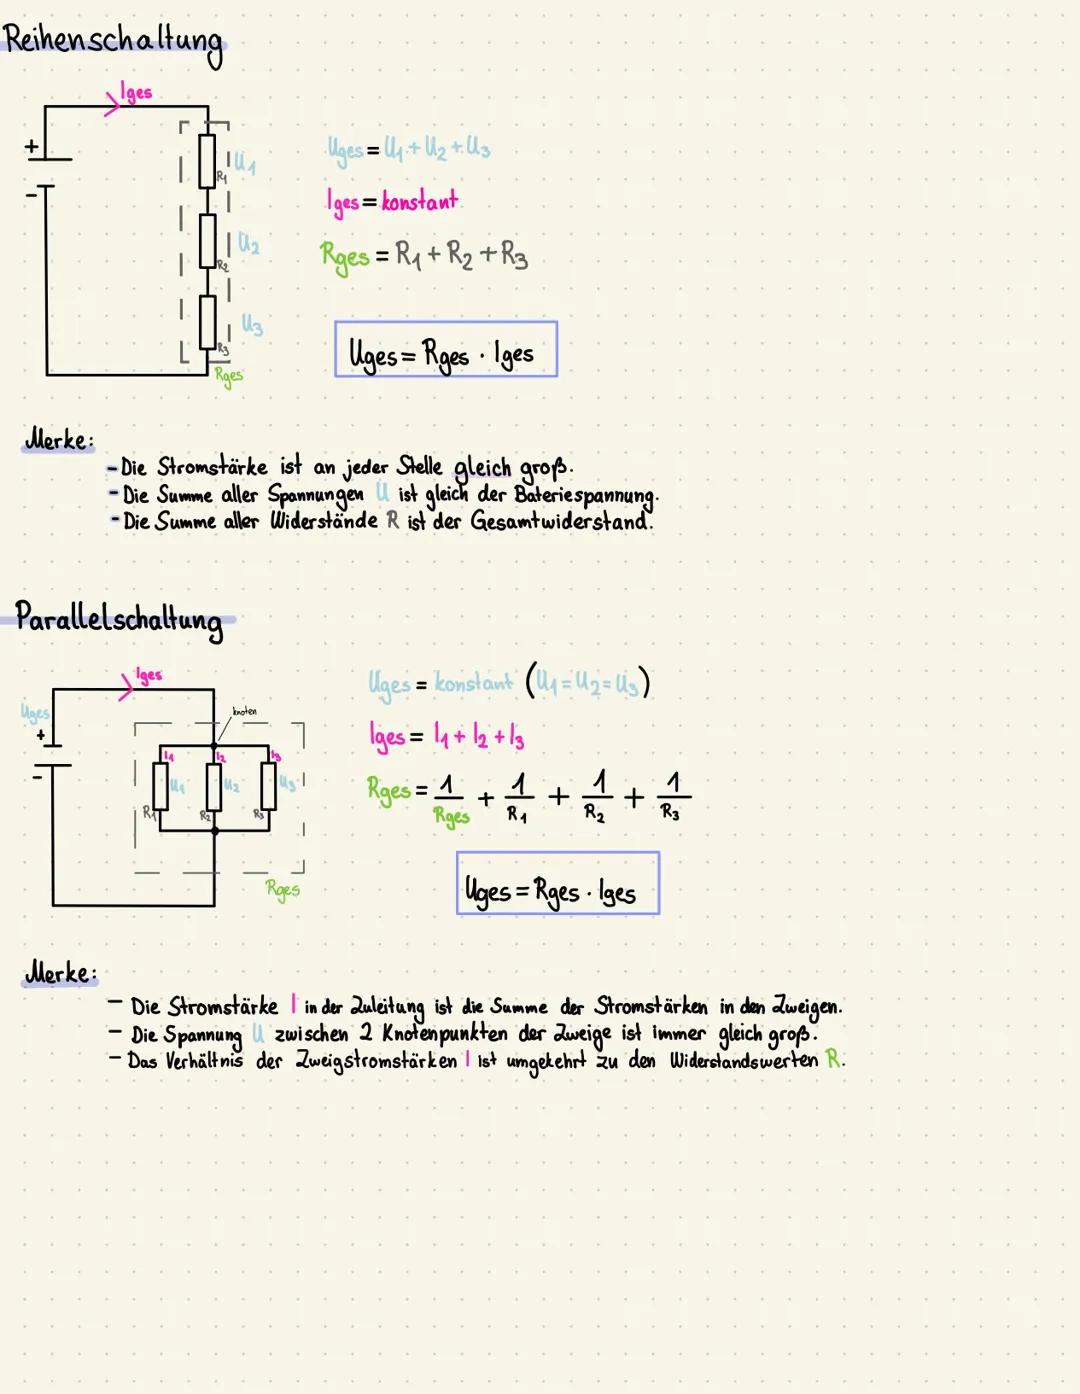 Reihenschaltung
Iges
+
-
U1
R1
U2
R2
U3
R3
Rges
Uges = U1 + U2 + U3
Iges = konstant
Rges = R1 + R2 + R3
Uges = Rges · Iges
Merke:
- Die Stromstärke ist an jeder Stelle gleich groß.
- Die Summe aller Spannungen U ist gleich der Bateriespannung.
- Die Summe aller Widerstände R ist der Gesamtwiderstand.
Parallelschaltung
Iges
Uges
+
-
knoten
I1 I2 I3
U1 U2 U3
R1 R2 R3
Rges
Uges = konstant (U1 = U2 = U3)
Iges = I1 + I2 + I3
Rges = 1/Rges + 1/R1 + 1/R2 + 1/R3
Uges = Rges · Iges
Merke:
- Die Stromstärke I in der Zuleitung ist die Summe der Stromstärken in den Zweigen.
- Die Spannung U zwischen 2 Knotenpunkten der Zweige ist immer gleich groß.
- Das Verhältnis der Zweigstromstärken I ist umgekehrt zu den Widerstandswerten R.